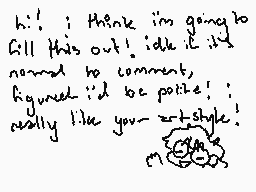 hi! i think i'm going to
fill this out! idk if it's
normal to comment,
figured i'd be polite! i
really like your artstyle!